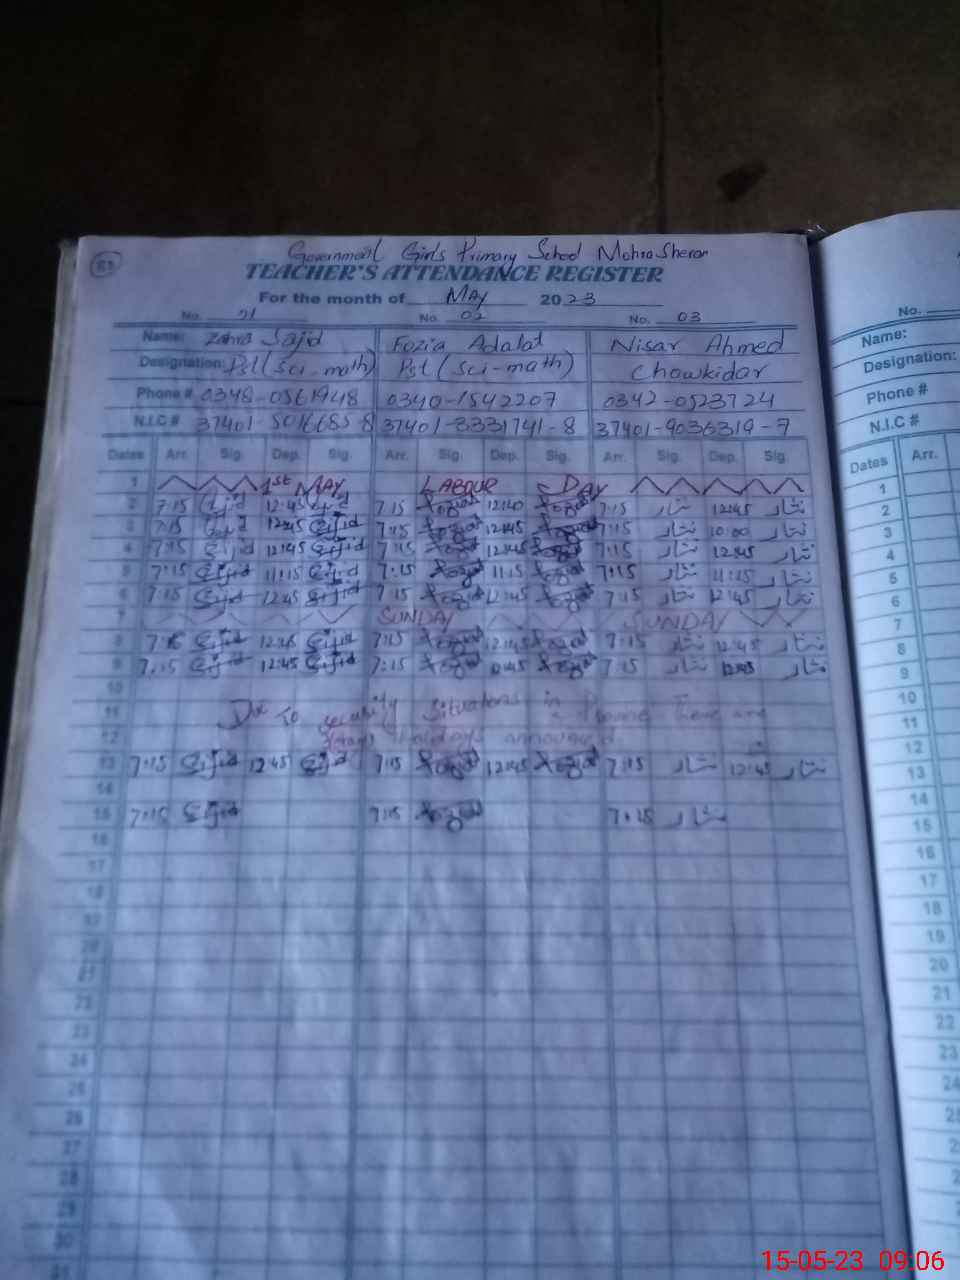 Government Girls Primary School Mohra Sheran
TEACHER'S ATTENDANCE REGISTER
For the month of May 2023
No. 01 No. 02 No. 03
Name: Zahra Sajid Fozia Adalat Nisar Ahmed
Designation: Pst (Sci-math) Pst (Sci-math) Chowkidar
Phone # 0348-0561948 0340-1542207 0342-0523724
N.I.C # 37401-5016685-8 37401-8331741-8 37401-9036319-7
Dates Arr. Sig. Dep. Sig. Arr. Sig. Dep. Sig. Arr. Sig. Dep. Sig.
1 1st MAY LABOUR DAY
2 7:15 Sajid 12:45 Sajid 7:15 12:40 7:15 نثار 12:45 نثار
3 7:15 Sajid 12:45 Sajid 7:15 12:45 7:15 نثار 10:00 نثار
4 7:15 Sajid 12:45 Sajid 7:15 12:45 7:15 نثار 12:45 نثار
5 7:15 Sajid 11:15 Sajid 7:15 11:15 7:15 نثار 11:15 نثار
6 7:15 Sajid 12:45 Sajid 7:15 12:45 7:15 نثار 12:45 نثار
7 SUNDAY SUNDAY
8 7:15 Sajid 12:45 Sajid 7:15 12:45 7:15 نثار 12:45 نثار
9 7:15 Sajid 12:45 Sajid 7:15 12:45 7:15 نثار 12:45 نثار
10
11 Due To security situations in There are
12 holidays announced.
13 7:15 Sajid 12:45 Sajid 7:15 12:45 7:15 نثار 12:45 نثار
14
15 7:15 Sajid 7:15 7:15 نثار
16
17
18
19
20
21
22
23
24
25
26
27
28
29
30
No.
Name:
Designation:
Phone #
N.I.C #
Dates Arr.
1
2
3
4
5
6
7
8
9
10
11
12
13
14
15
16
17
18
19
20
21
22
23
24
15-05-23 09:06